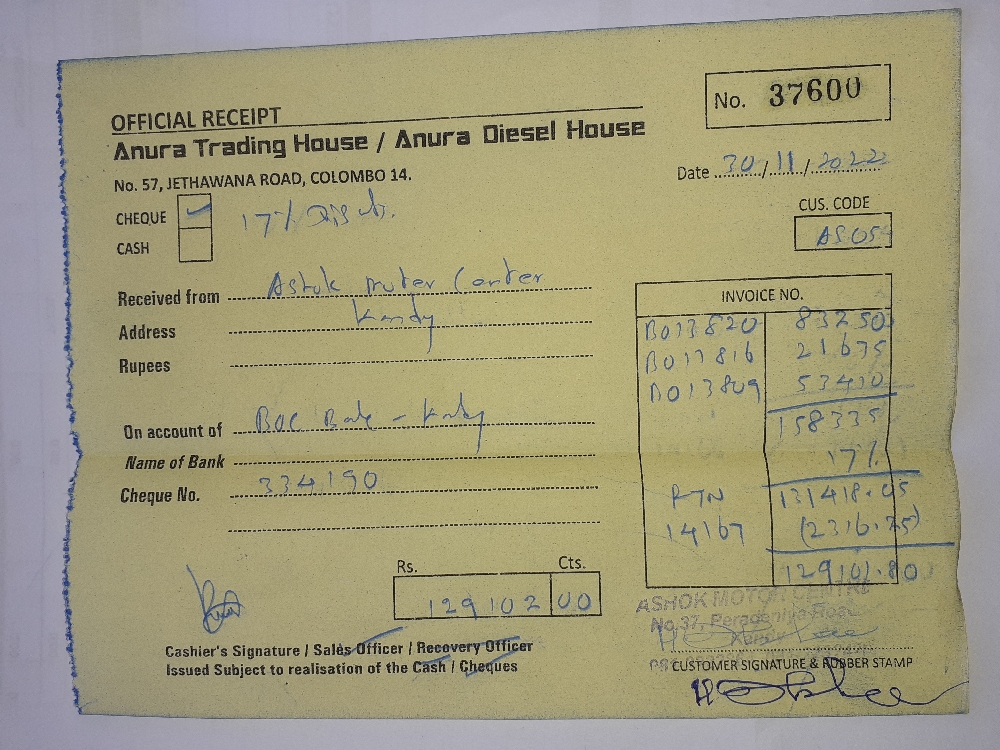 OFFICIAL RECEIPT
No. 37600
Anura Trading House / Anura Diesel House
No. 57, JETHAWANA ROAD, COLOMBO 14.
Date 30/11/2022
CHEQUE 17%
CASH
CUS. CODE
AS05
Received from Ashok Center
Address Kandy
Rupees
On account of BOC
Name of Bank
Cheque No. 334190
INVOICE NO.
B013820 83250
B013816 21675
B013809 53410
158335
17%
RTN 131418.05
14167 (2316.25)
129101.80
Rs. Cts.
129102 00
ASHOK MOTOR CENTRE
No.37, Peradeniya Road
Kandy
Cashier's Signature / Sales Officer / Recovery Officer
Issued Subject to realisation of the Cash / Cheques
CUSTOMER SIGNATURE & RUBBER STAMP